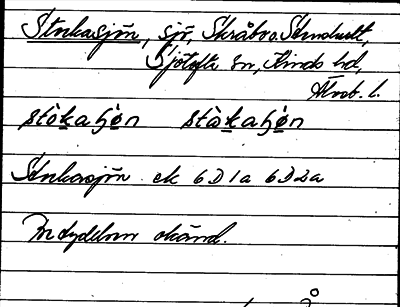 Stockasjön, sjö, Skråbo o. Stundult,
Sjötofta sn, Kinds hd,
Älvsb. l.
stòkaɧø̀n stàkaɧø̀n
Stockasjön ek 6D1a 6D2a
Betydelsen okänd.